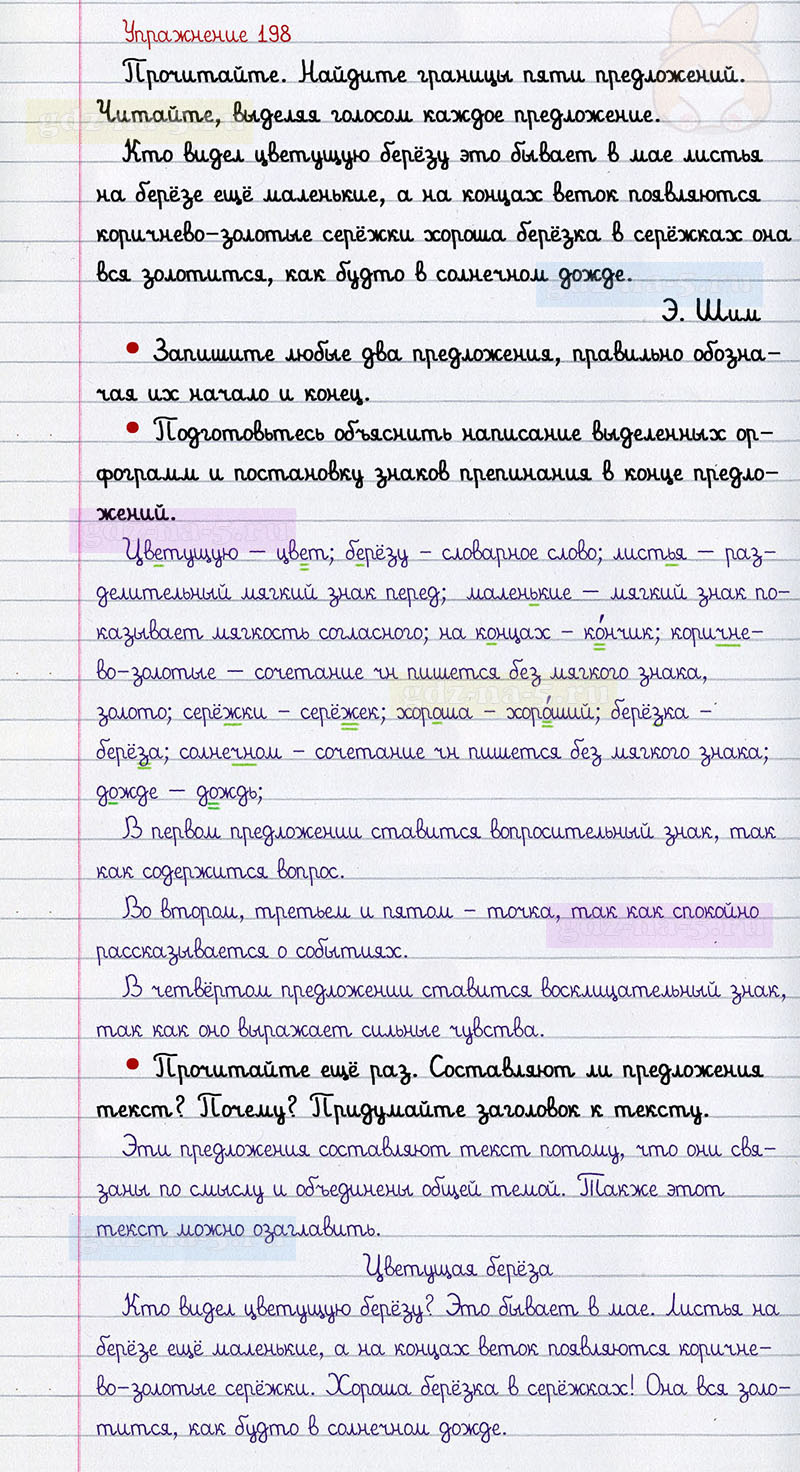 Упражнение 198
Прочитайте. Найдите границы пяти предложений.
Читайте, выделяя голосом каждое предложение.
Кто видел цветущую берёзу это бывает в мае листья
на берёзе ещё маленькие, а на концах веток появляются
коричнево-золотые серёжки хороша берёзка в серёжках она
вся золотится, как будто в солнечном дожде.
Э. Шим
• Запишите любые два предложения, правильно обозна-
чая их начало и конец.
• Подготовьтесь объяснить написание выделенных ор-
фограмм и постановку знаков препинания в конце предло-
жений.
Цветущую – цвет; берёзу – словарное слово; листья – раз-
делительный мягкий знак перед; маленькие – мягкий знак по-
казывает мягкость согласного; на концах – ко́нчик; коричне-
во-золотые – сочетание чн пишется без мягкого знака,
золото; серёжки – серёжек; хороша – хоро́ший; берёзка –
берёза; солнечном – сочетание чн пишется без мягкого знака;
дожде – дождь;
В первом предложении ставится вопросительный знак, так
как содержится вопрос.
Во втором, третьем и пятом – точка, так как спокойно
рассказывается о событиях.
В четвёртом предложении ставится восклицательный знак,
так как оно выражает сильные чувства.
• Прочитайте ещё раз. Составляют ли предложения
текст? Почему? Придумайте заголовок к тексту.
Эти предложения составляют текст потому, что они свя-
заны по смыслу и объединены общей темой. Также этот
текст можно озаглавить.
Цветущая берёза
Кто видел цветущую берёзу? Это бывает в мае. Листья на
берёзе ещё маленькие, а на концах веток появляются коричне-
во-золотые серёжки. Хороша берёзка в серёжках! Она вся золо-
тится, как будто в солнечном дожде.